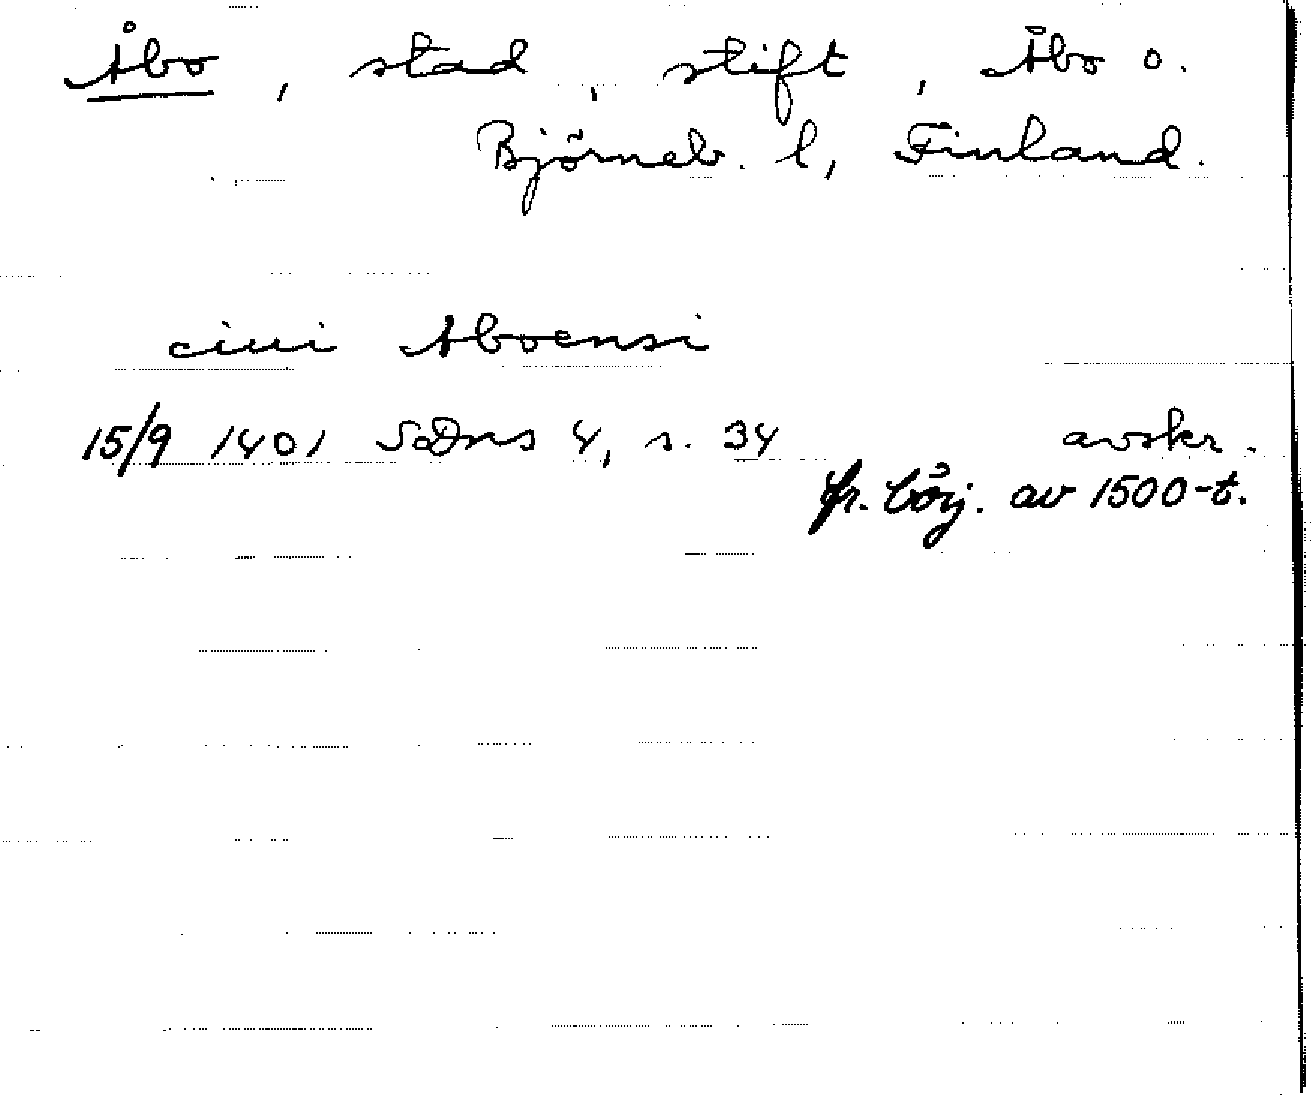 Åbo, stad, stift, Åbo o.
Björneb. l, Finland.
ciui Aboensi
15/9 1401 SDns 4, s. 34 avskr.
fr. börj. av 1500-t.